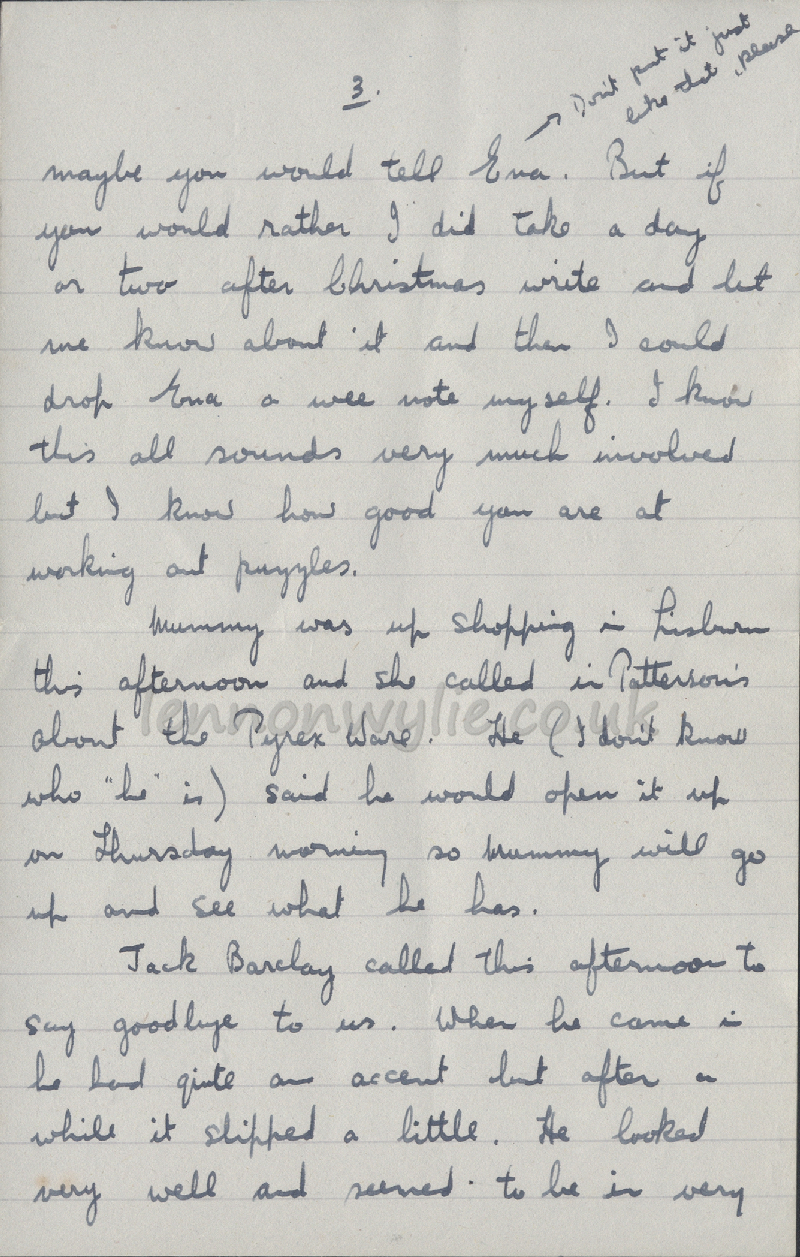 3.
→ Don't put it just
like that, please
maybe you would tell Ena. But if
you would rather I did take a day
or two after Christmas write and let
me know about it and then I could
drop Ena a wee note myself. I know
this all sounds very much involved
but I know how good you are at
working out puzzles.
Mummy was up shopping in Lisburn
this afternoon and she called in Patterson's
about the Pyrex Ware. He (I don't know
who "he" is) said he would open it up
on Thursday morning so Mummy will go
up and see what he has.
Jack Barclay called this afternoon to
say goodbye to us. When he came in
he had quite an accent but after a
while it slipped a little. He looked
very well and seemed to be in very
lennonwylie.co.uk